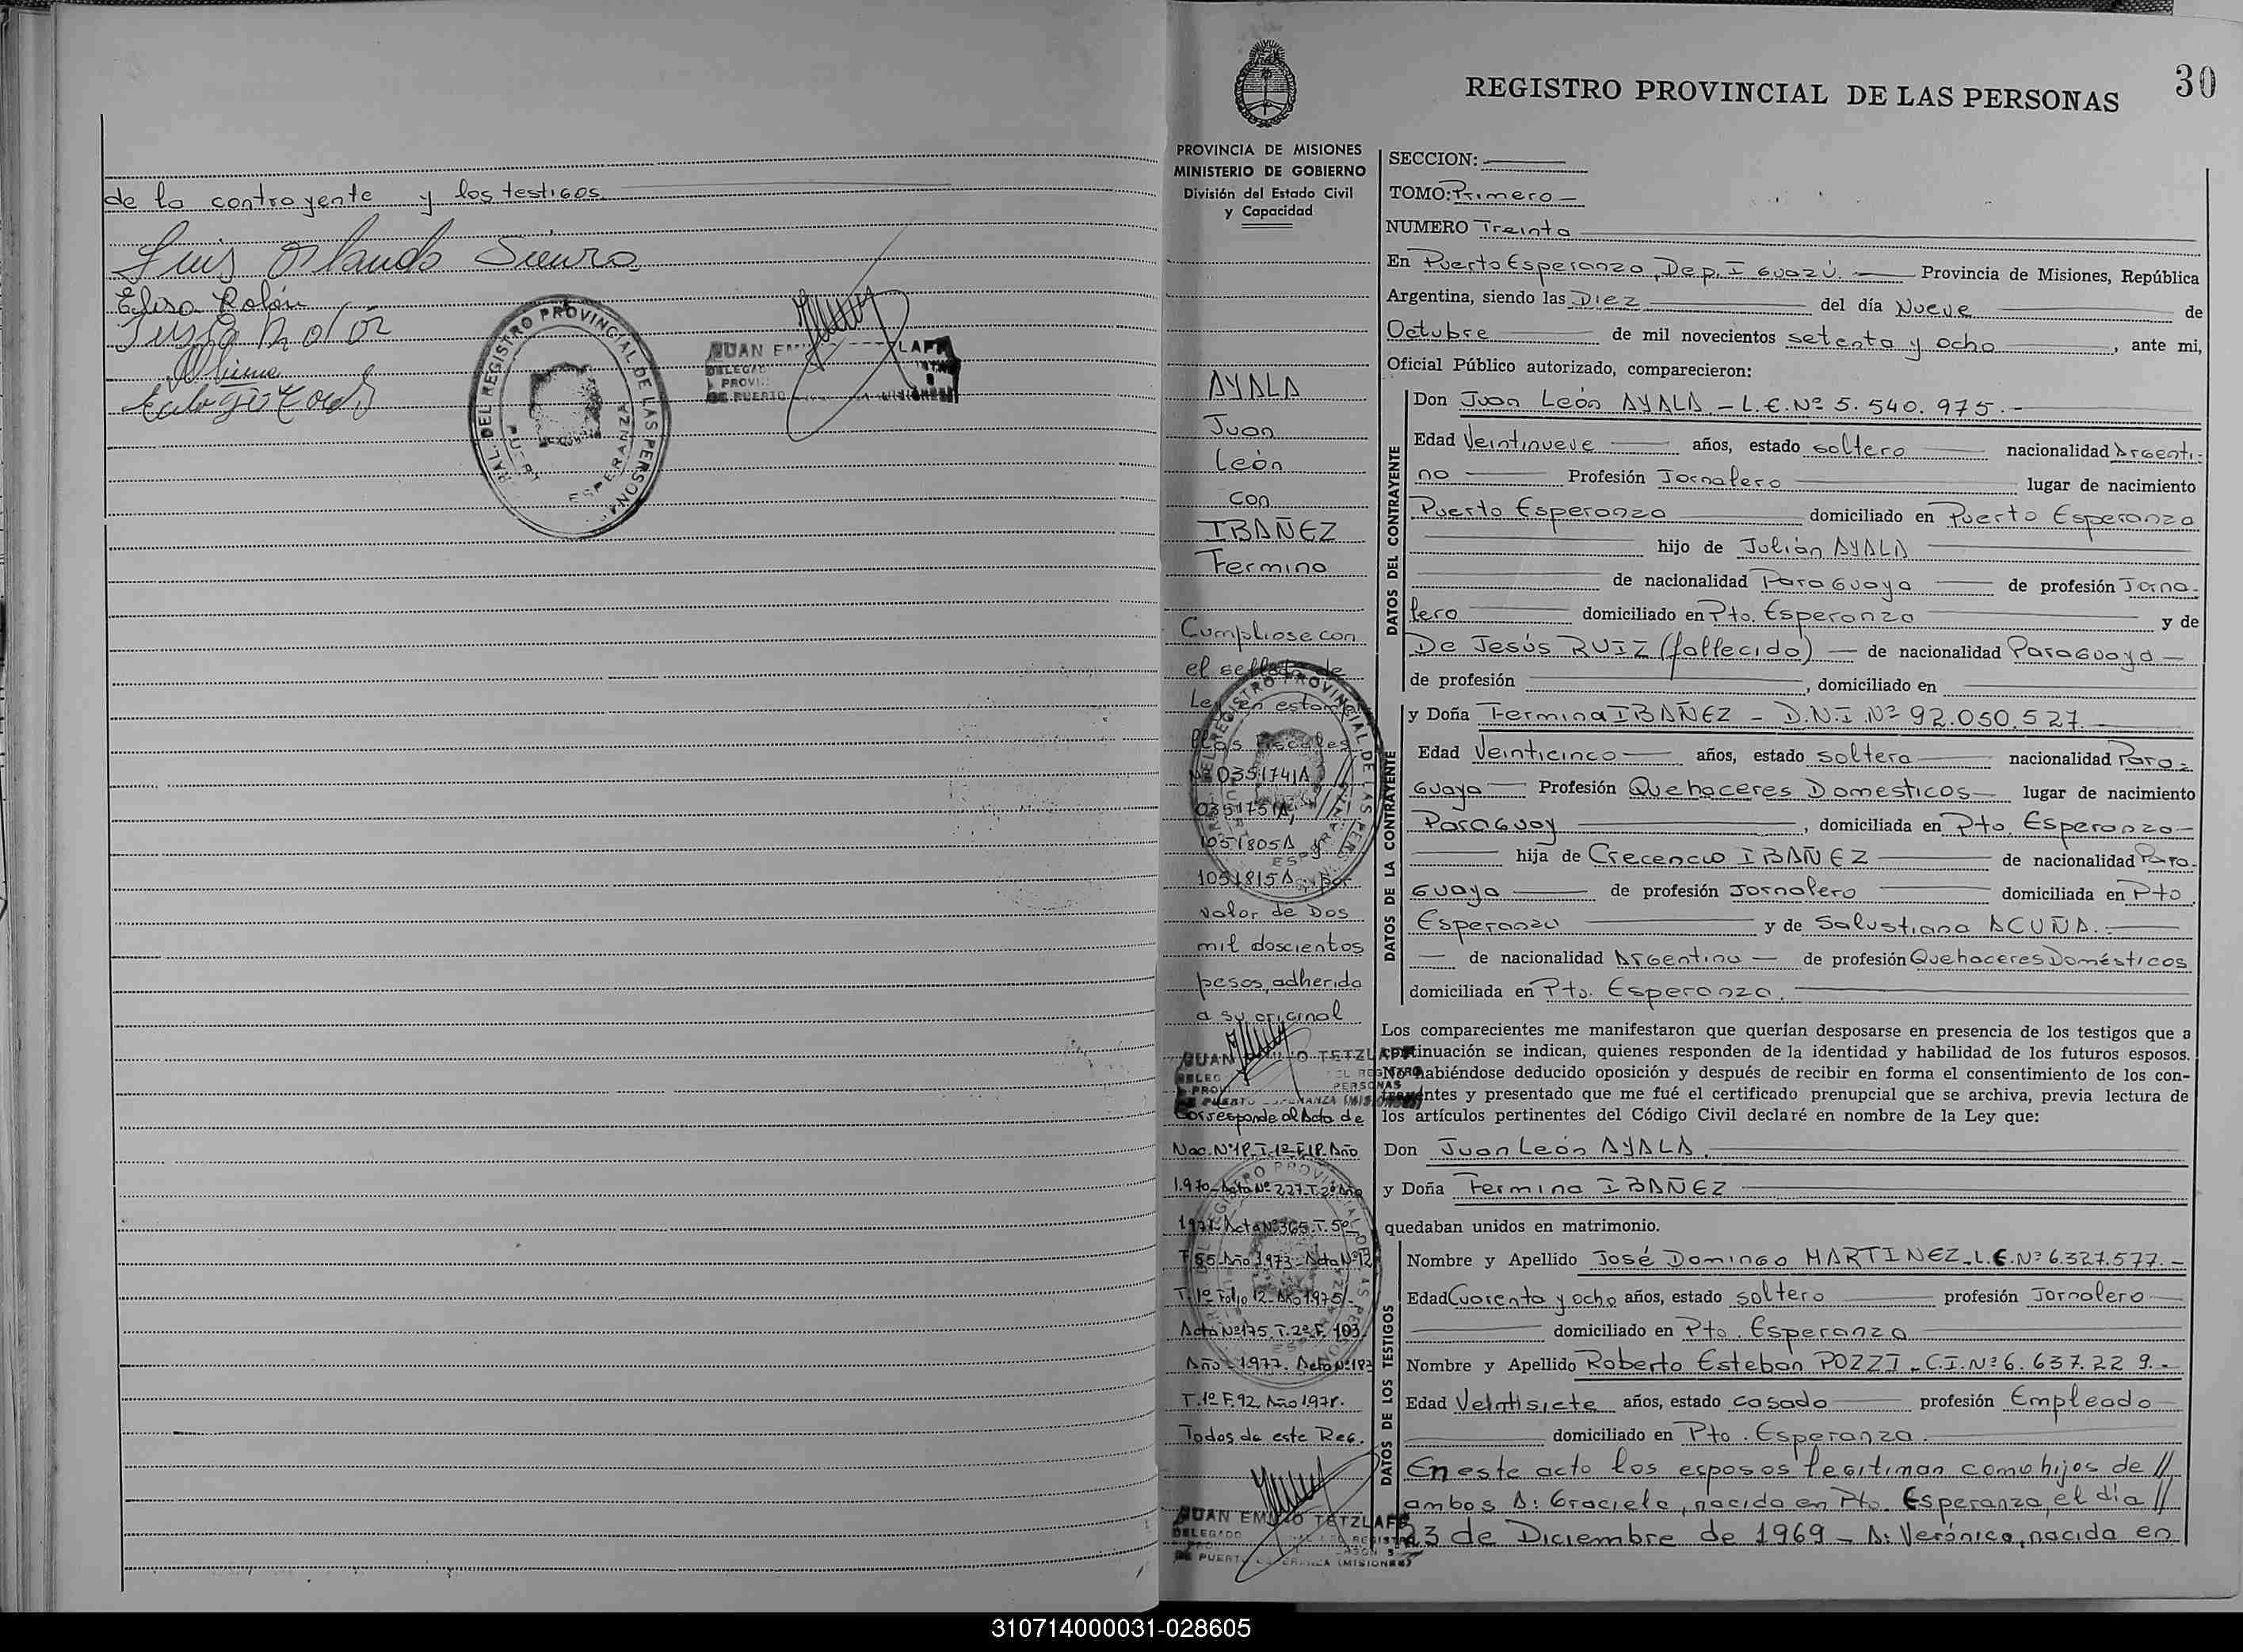 de la contrayente y los testigos.
Luis Orlando
Elisa Rolón
REGISTRO PROVINCIAL DE LAS PERSONAS
ESPERANZA
30
REGISTRO PROVINCIAL DE LAS PERSONAS
PROVINCIA DE MISIONES
MINISTERIO DE GOBIERNO
División del Estado Civil
y Capacidad
AYALA
Juan
León
con
IBAÑEZ
Fermina
Cumpliose con
el sellado de
Ley en estam
pillas fiscales
Nº 0351741A
0351751A,
1051805A y
1051815A, por
valor de Dos
mil doscientos
pesos, adherida
a su original
JUAN EMILIO TETZLAFF
Corresponde al Acta de
Nac. Nº 18-T.1º-F.18-Año
1.970-Acta Nº 227-T.2º Año
1971-Acta Nº 365-T.5º-
F.55-Año 1.973-Acta Nº 12
T.1º Folio 12-Año 1975/-
Acta Nº 175. T.2º F. 103/
Año-1.977. Acta Nº 183
T.1º F.92 Año 1.978.
Todos de este Reg.
JUAN EMILIO TETZLAFF
SECCION:
TOMO: Primero-
NUMERO Treinta
En Puerto Esperanza, Dep. Iguazú. Provincia de Misiones, República
Argentina, siendo las Diez del día Nueve de
Octubre de mil novecientos setenta y ocho, ante mi,
Oficial Público autorizado, comparecieron:
DATOS DEL CONTRAYENTE
Don Juan León AYALA - L.E. Nº 5.540.975.-
Edad Veintinueve años, estado soltero nacionalidad Argenti-
no Profesión Jornalero lugar de nacimiento
Puerto Esperanza domiciliado en Puerto Esperanza
hijo de Julián AYALA
de nacionalidad Paraguaya de profesión Jorna-
lero domiciliado en Pto. Esperanza y de
De Jesús RUIZ (fallecido) de nacionalidad Paraguaya
de profesión , domiciliado en
DATOS DE LA CONTRAYENTE
y Doña Fermina IBAÑEZ - D.N.I. Nº 92.050.527.
Edad Veinticinco años, estado soltera nacionalidad Para-
guaya Profesión Quehaceres Domesticos lugar de nacimiento
Paraguay, domiciliada en Pto. Esperanza
hija de Crecencio IBAÑEZ de nacionalidad Para-
guaya de profesión Jornalero domiciliada en Pto
Esperanza y de Salustiana ACUÑA.
de nacionalidad Argentina de profesión Quehaceres Domésticos
domiciliada en Pto. Esperanza.
Los comparecientes me manifestaron que querían desposarse en presencia de los testigos que a
continuación se indican, quienes responden de la identidad y habilidad de los futuros esposos.
No habiéndose deducido oposición y después de recibir en forma el consentimiento de los con-
trayentes y presentado que me fué el certificado prenupcial que se archiva, previa lectura de
los artículos pertinentes del Código Civil declaré en nombre de la Ley que:
Don Juan León AYALA.
y Doña Fermina IBAÑEZ
quedaban unidos en matrimonio.
DATOS DE LOS TESTIGOS
Nombre y Apellido José Domingo MARTINEZ-L.E. Nº 6.327.577.-
Edad Cuarenta y ocho años, estado soltero profesión Jornalero
domiciliado en Pto. Esperanza
Nombre y Apellido Roberto Esteban POZZI-C.I. Nº 6.637.229.-
Edad Veintisiete años, estado casado profesión Empleado
domiciliado en Pto. Esperanza.
En este acto los esposos legitiman como hijos de //
ambos A: Graciela, nacida en Pto. Esperanza, el día //
23 de Diciembre de 1969 - A: Verónica, nacida en
310714000031-028605